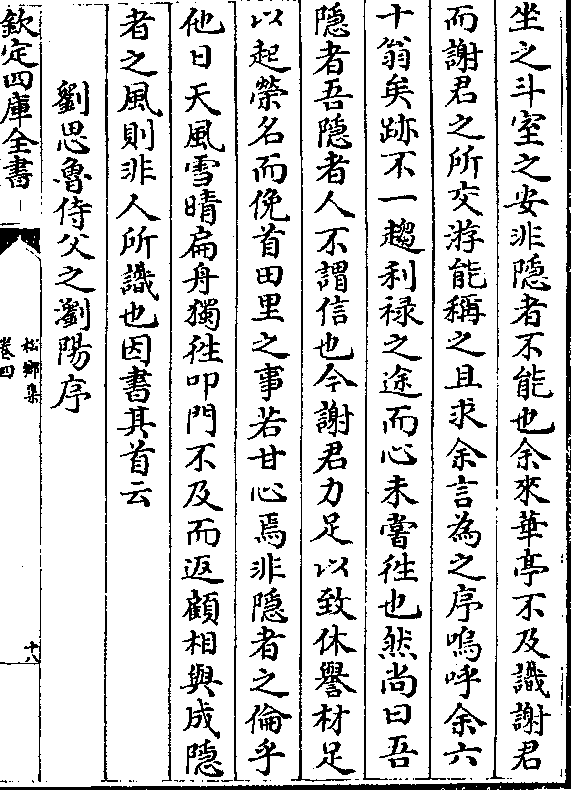 坐之斗室之安非隠者不能也余來華亭不及識謝君
而謝君之所交游能稱之且求余言為之序嗚呼余六
十翁矣跡不一趨利禄之途而心未嘗徃也然尚曰吾
隠者吾隠者人不謂信也今謝君力足以致休譽材足
以起榮名而俛首田里之事若甘心焉非隠者之倫乎
他日天風雪晴扁舟獨徃叩門不及而返顧相與成隠
者之風則非人所識也因書其首云
劉思魯侍父之瀏陽序
欽定四庫全書
松鄉集
卷四
十八